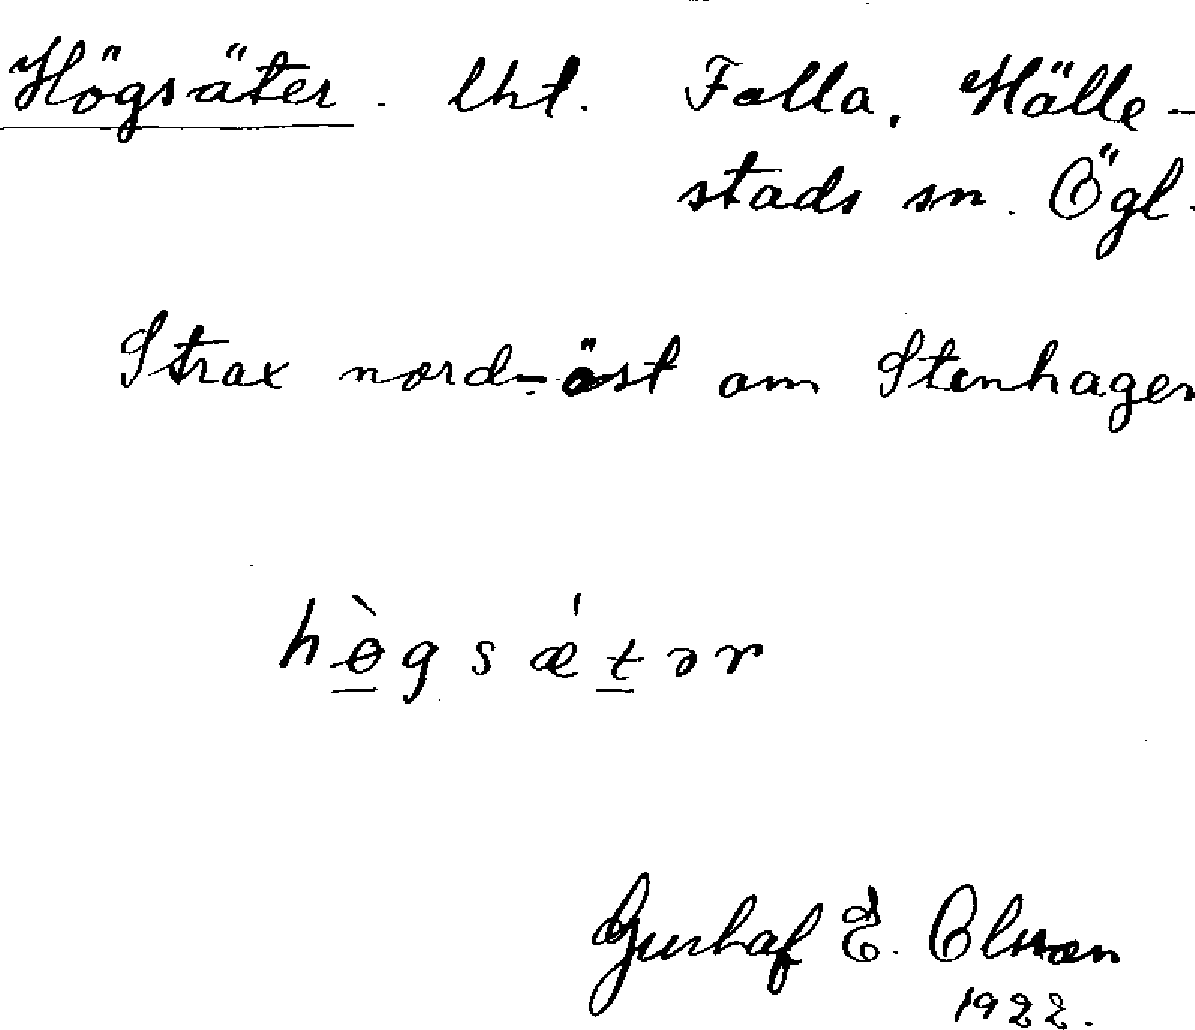 Högsäter. lht. Folla, Hälle-
stads sn. Ögl.
Strax nord-öst om Stenhagen
hø̀gsǽtər
Gustaf E. Olsson
1922.